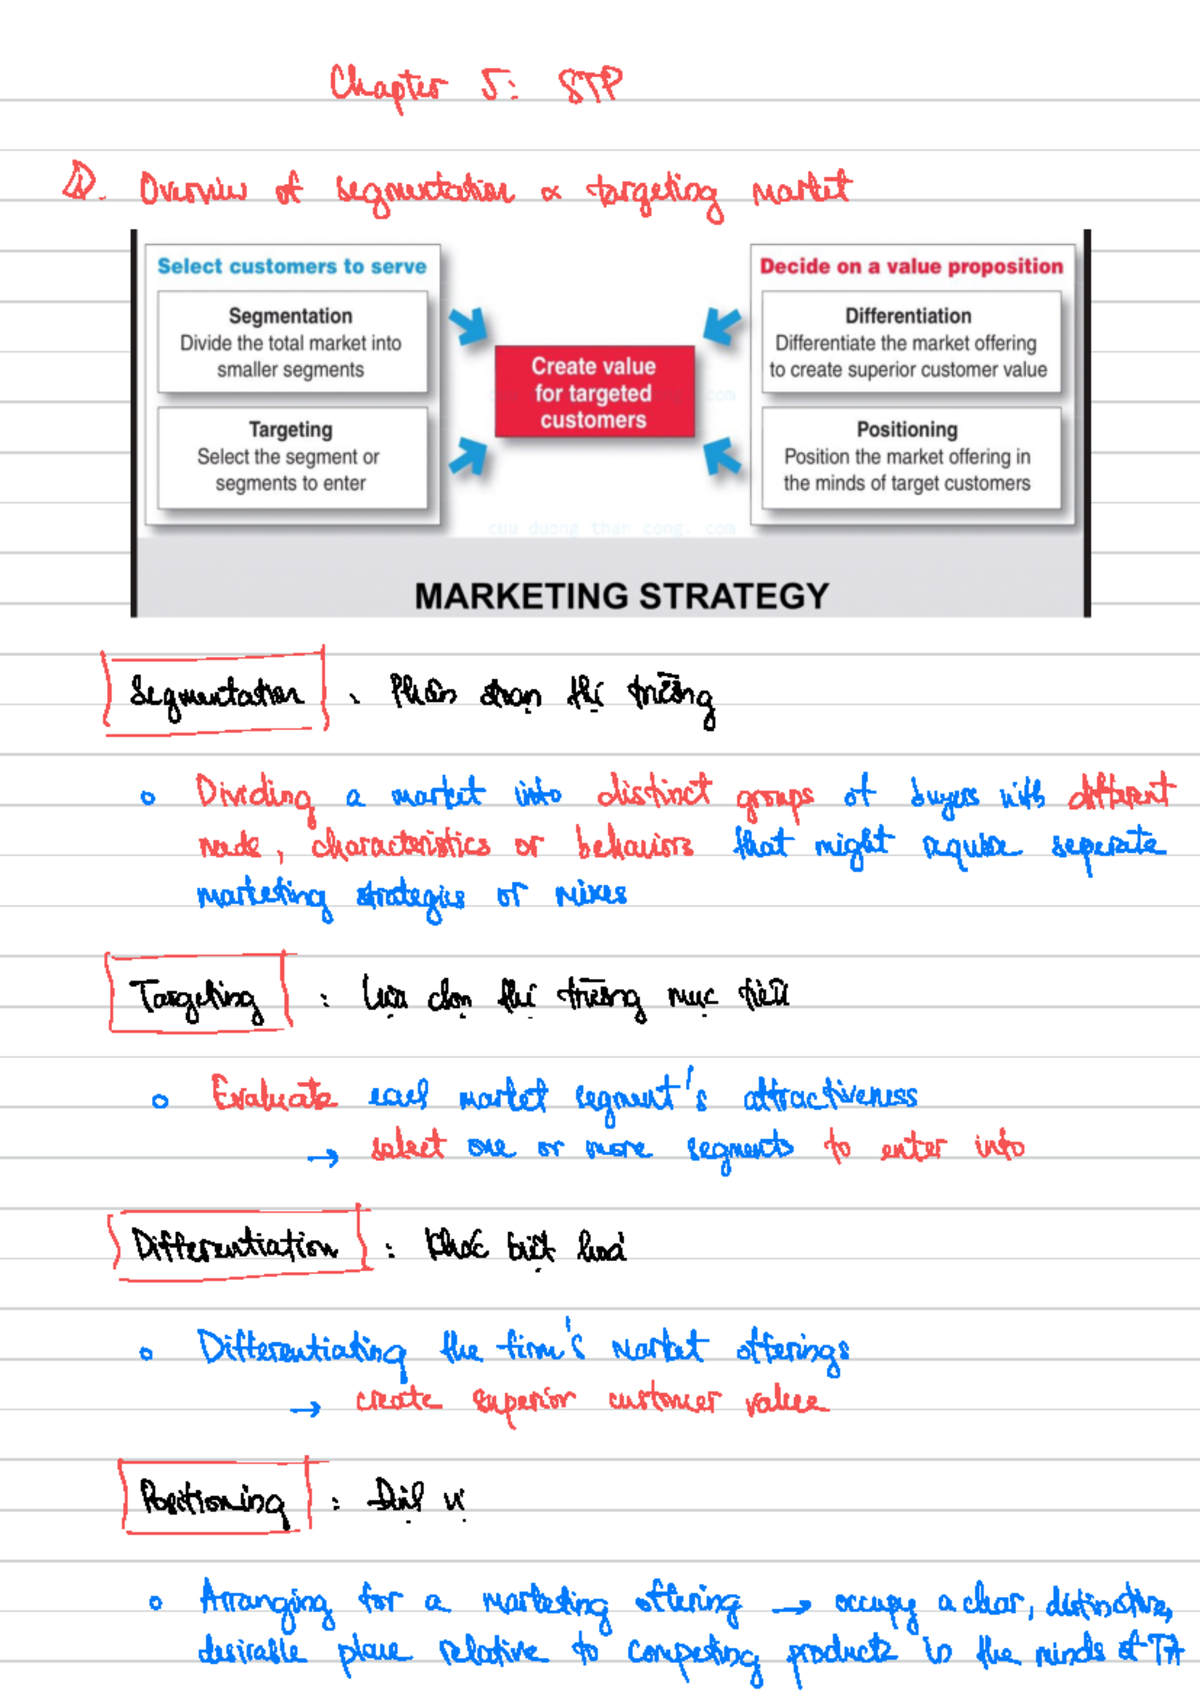 Chapter 5: STP
1. Overview of segmentation & targeting market
Select customers to serve
Segmentation
Divide the total market into
smaller segments
Targeting
Select the segment or
segments to enter
Create value
for targeted
customers
Decide on a value proposition
Differentiation
Differentiate the market offering
to create superior customer value
Positioning
Position the market offering in
the minds of target customers
cuu duong than cong. com
MARKETING STRATEGY
Segmentation : Phân đoạn thị trường
Dividing a market into distinct groups of buyers with different
needs, characteristics or behaviors that might require seperate
marketing strategies or mixes
Targeting : Lựa chọn thị trường mục tiêu
Evaluate each market segment's attractiveness
→ select one or more segments to enter into
Differentiation : Khác biệt hoá
Differentiating the firm's market offerings
→ create superior customer value
Positioning : Định vị
Arranging for a marketing offering → occupy a clear, distinctive,
desirable place relative to competing products in the minds of TA